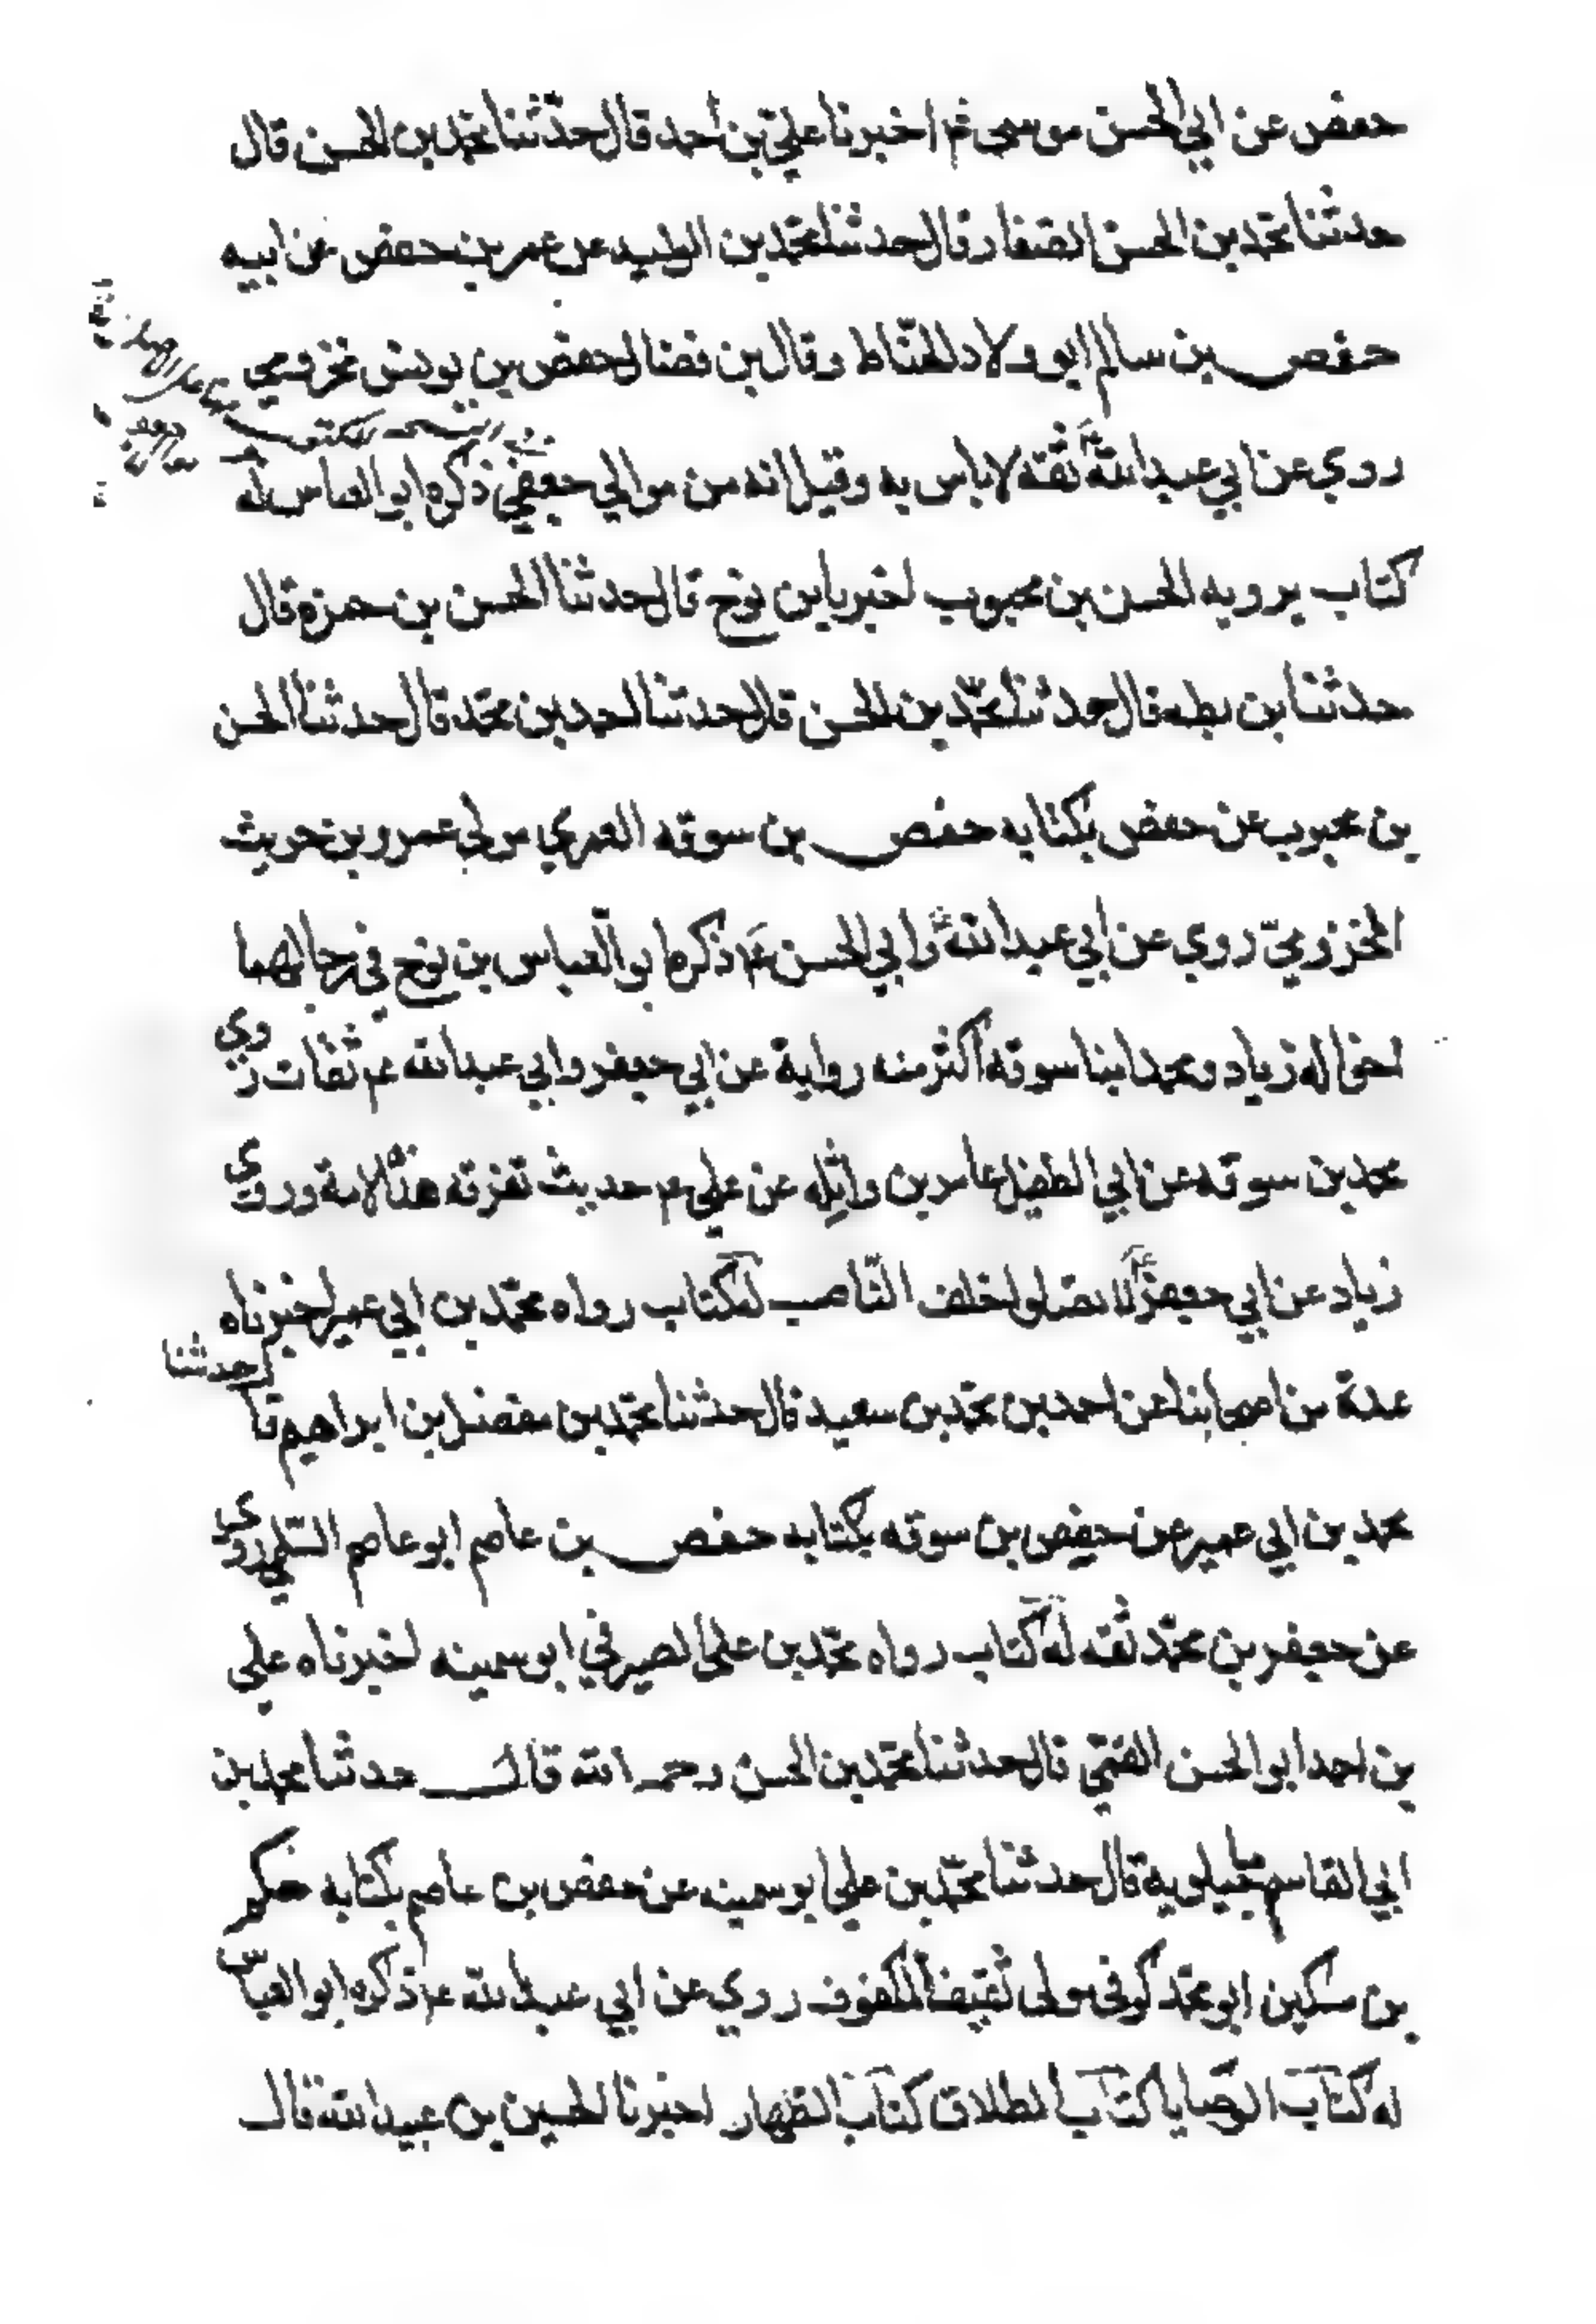 حفص عن ابي الحسن موسى عم اخبرنا علي بن أحمد قال حدثنا محمد بن الحسن قال
حدثنا محمد بن الحسن الصفار قال حدثنا محمد بن الوليد عن عمر بن حفص عن ابيه
حفص بن سالم ابو ولاد الحنّاط وقال بن فضال حفص بن يونس مخزومي
روي عن ابي عبد الله ثقة لا باس به وقيل انه من موالي جعفي ذكره ابو العباس له
كتاب يرويه الحسن بن محبوب اخبرنا بن نوح قال حدثنا الحسن بن حمزة قال
حدثنا بن بطه قال حدثنا محمّد بن الحسن قال حدثنا احمد بن محمد قال حدثنا الحسن
بن محبوب عن حفص بكتابه حفص بن سوقه العمري مولى عمرو بن حريث
المخزوميّ روي عن ابي عبد الله وابي الحسن عم ذكره ابو العباس بن نوح في رجالهما
اخوا له زياد ومحمد ابنا سوقه اكثر منه رواية عن ابي جعفر وابي عبد الله عم ثقات روي
محمد بن سوقه عن ابي الطفيل عامر بن واثله عن علي عم حديث تفرقه هذه الامة وروي
زياد عن ابي جعفر لا تصلوا خلف النّاصب له كتاب رواه محمّد بن ابي عمير اخبرناه
عدة من اصحابنا عن احمد بن محمّد بن سعيد قال حدثنا محمّد بن مفضل بن ابراهيم قال حدثنا
محمد بن ابي عمير عن حفص بن سوقه بكتابه حفص بن عاصم ابو عاصم السّلمي روي
عن جعفر بن محمّد ثقه له كتاب رواه محمّد بن علي الصيرفي ابو سمينه اخبرناه علي
بن احمد ابو الحسن القمّي قال حدثنا محمّد بن الحسن رحمه الله قال حدثنا محمد بن
ابي القاسم ماجيلويه قال حدثنا محمّد بن علي ابو سمينه عن حفص بن عاصم بكتابه حكم
بن مسكين ابو محمّد كوفي مولى ثقيف المكفوف روي عن ابي عبد الله عم ذكره ابو العباس
له كتاب الوصايا كتاب الطلاق كتاب الظهار اخبرنا الحسين بن عبيد الله قال